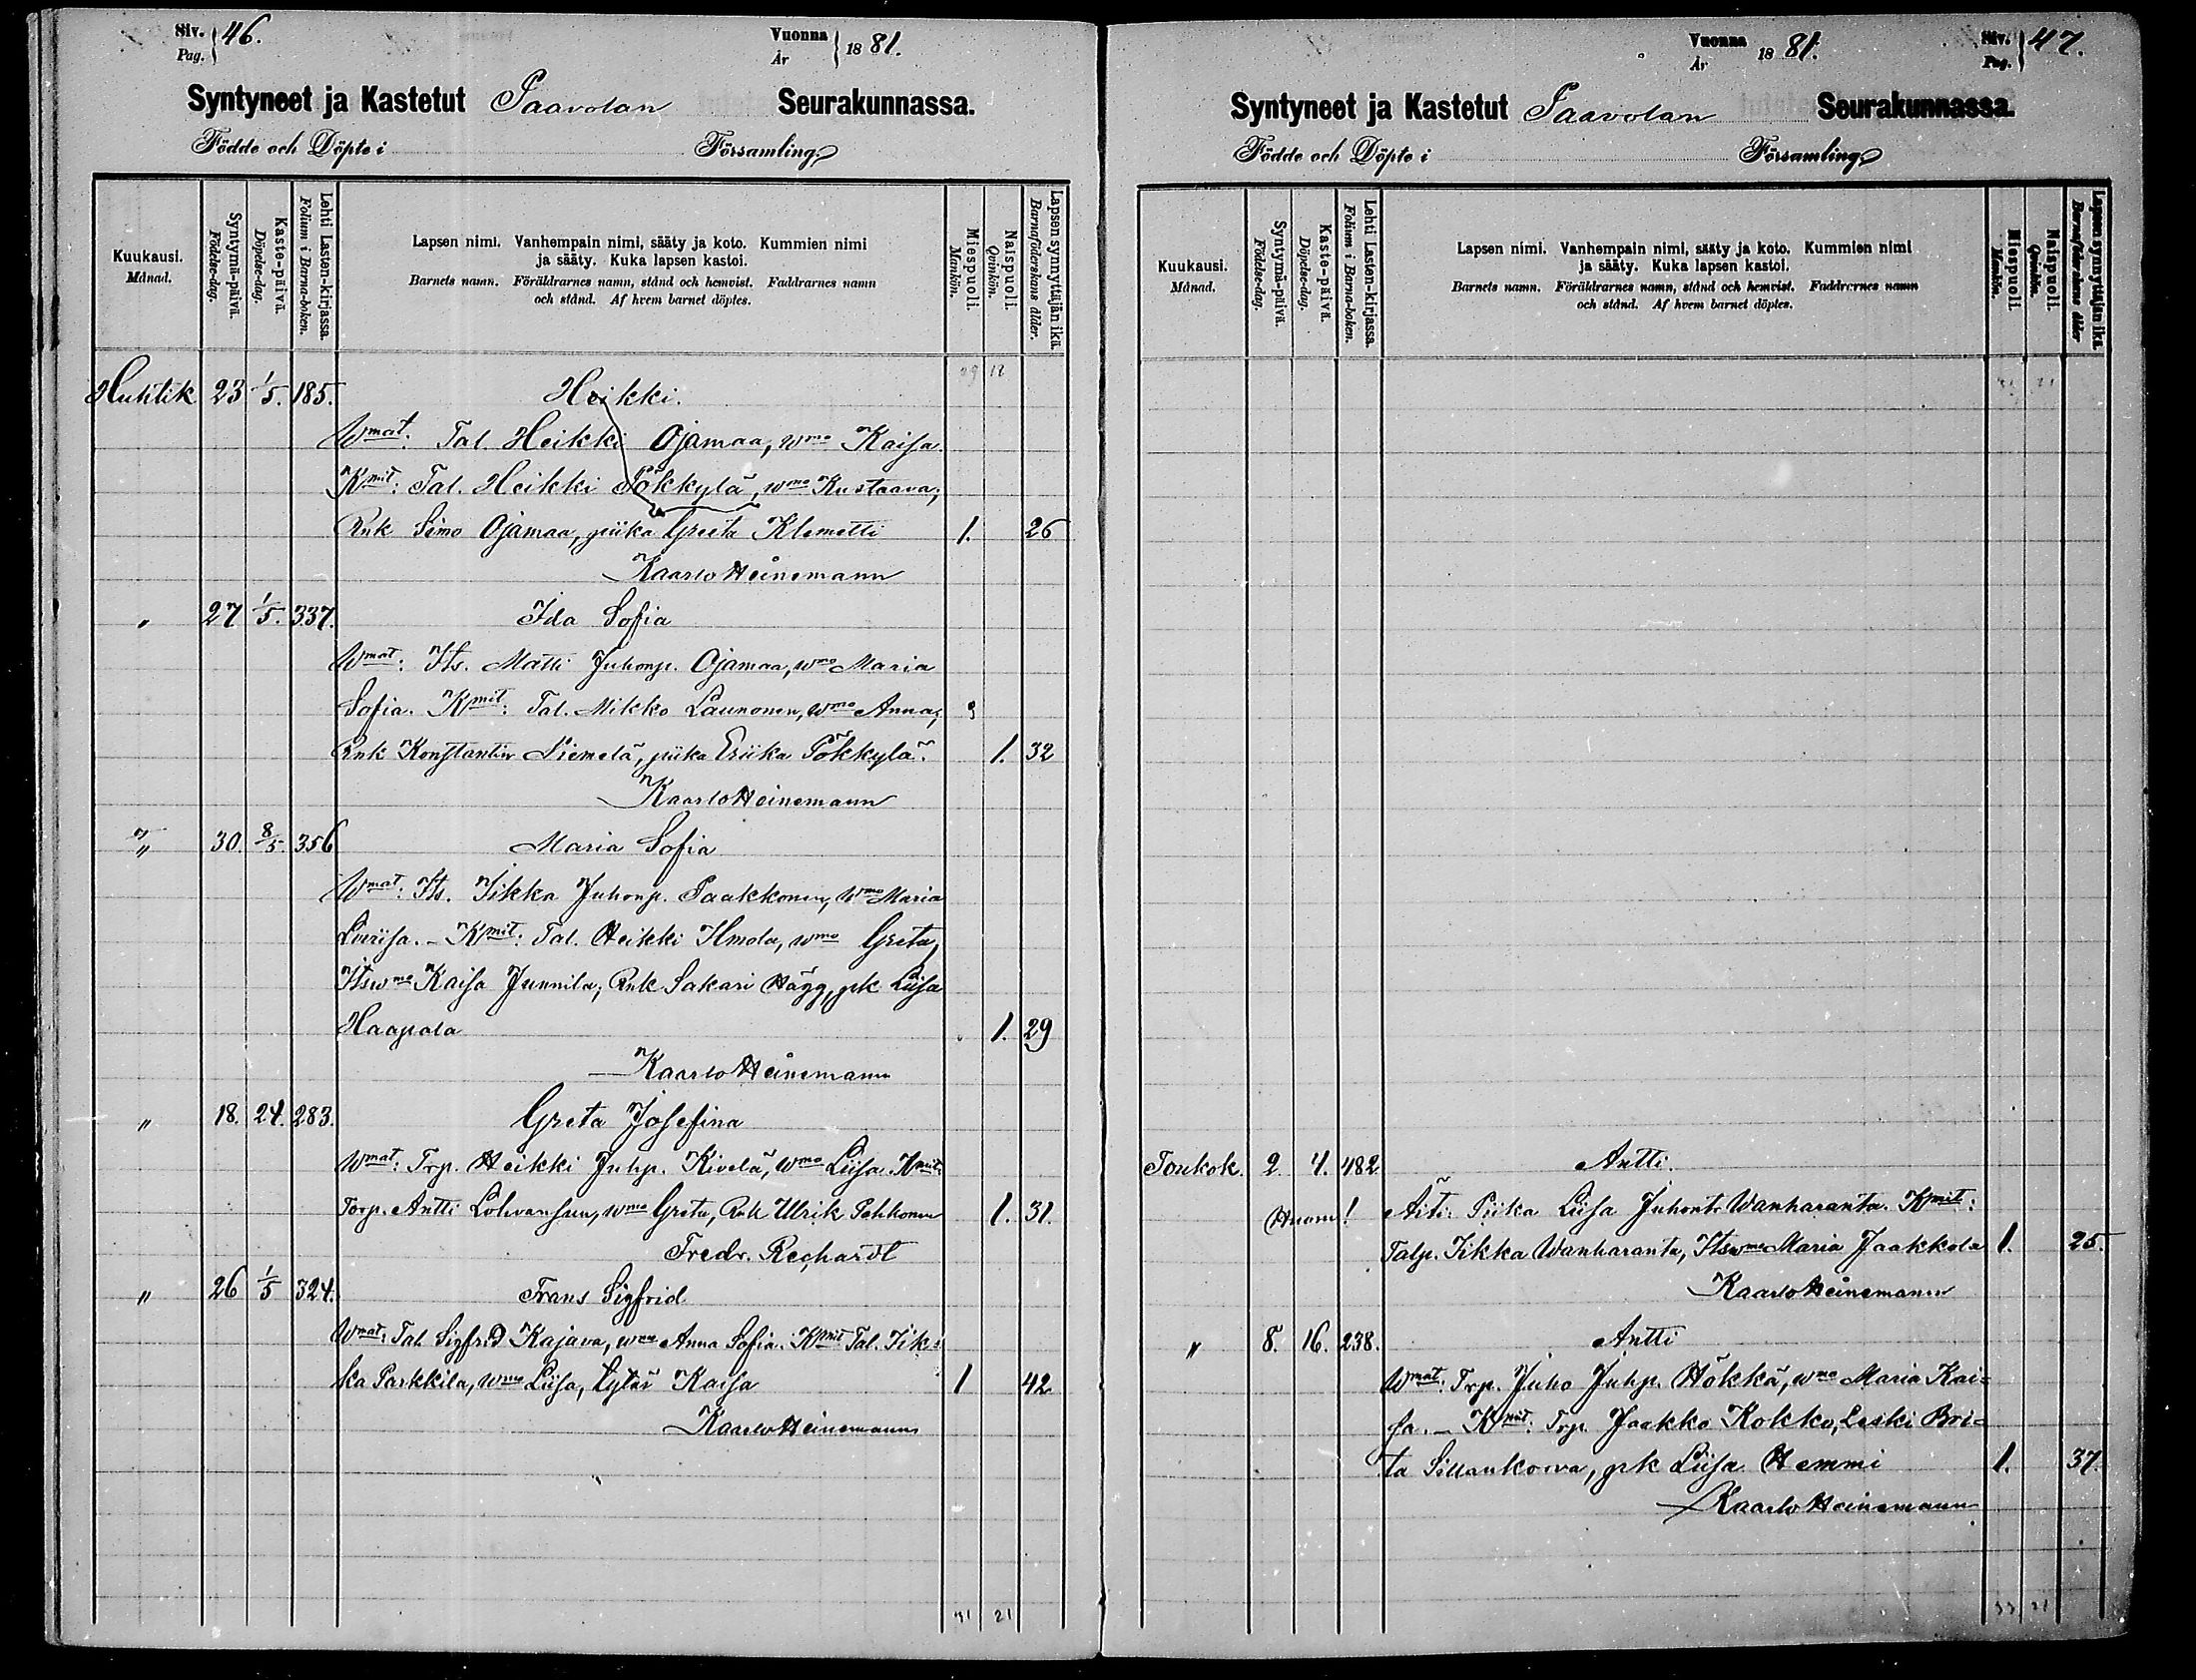 Siv. 46.
Pag.
Vuonna 1881.
År
Syntyneet ja Kastetut Paavolan Seurakunnassa.
Födde och Döpte i Församling
Kuukausi.
Månad.
Syntymä-päivä.
Födelse-dag.
Kaste-päivä.
Döpelse-dag.
Lehti Lasten-kirjassa.
Folium i Barna-boken.
Lapsen nimi. Vanhempain nimi, sääty ja koto. Kummien nimi
ja sääty. Kuka lapsen kastoi.
Barnets namn. Föräldrarnes namn, stånd och hemvist. Faddrarnes namn
och stånd. Af hvem barnet döptes.
Miespuoli.
Mankön.
Naispuoli.
Qvinkön.
Lapsen synnyttäjän ikä.
Barnaföderskans ålder.
29 18
Huhtik 23 1/5. 185. Heikki.
Wmat: Tal. Heikki Ojamaa, wmo Kaisa.
Kmit: Tal. Heikki Pökkylä, wmo Kustaava;
Rnk Simo Ojamaa, piika Greeta Klemetti 1. 26
Kaarlo Heinemann
" 27 1/5. 337. Ida Sofia
Wmat: Its. Matti Juhonp. Ojamaa, wmo Maria
Sofia. Kmit: Tal. Mikko Launonen, wmo Anna;
Rnk Konstantin Niemelä, piika Eriika Pökkylä. 1. 32
Kaarlo Heinemann
" 30. 8/5. 356 Maria Sofia
Wmat: Its. Iikka Juhonp. Paakkonen, wmo Maria
Loviisa. - Kmit: Tal. Heikki Ilmola, wmo Greta,
Itswmo Kaisa Junnila; Rnk Sakari Hägg, pk Liisa
Haapala 1. 29
Kaarlo Heinemann
" 18. 24. 283. Greta Josefina
Wmat: Trp. Heikki Juhp. Kivelä, wmo Liisa. Kmit:
Torp. Antti Lohvansuu, wmo Greta, Rnk Ulrik Pehkonen 1. 31.
Fredr. Rechardt
" 26 1/5 324. Frans Sigfrid
Wmat: Tal. Sigfrid Kajava, wmo Anna Sofia. Kmit: Tal. Iik-
ka Parkkila, wmo Liisa, tytär Kaisa 1 42
Kaarlo Heinemann
31 21
Vuonna 1881.
År
Siv. 47.
Pag.
Syntyneet ja Kastetut Paavolan Seurakunnassa.
Födde och Döpte i Församling
Kuukausi.
Månad.
Syntymä-päivä.
Födelse-dag.
Kaste-päivä.
Döpelse-dag.
Lehti Lasten-kirjassa.
Folium i Barna-boken.
Lapsen nimi. Vanhempain nimi, sääty ja koto. Kummien nimi
ja sääty. Kuka lapsen kastoi.
Barnets namn. Föräldrarnes namn, stånd och hemvist. Faddrarnes namn
och stånd. Af hvem barnet döptes.
Miespuoli.
Mankön.
Naispuoli.
Qvinkön.
Lapsen synnyttäjän ikä.
Barnaföderskans ålder
31 21
Toukok. 2. 4. 482. Antti.
Huom! Äiti: Piika Liisa Juhontr Wanharanta. Kmit:
Talp. Iikka Wanharanta, Itswmo Maria Jaakkola 1. 25.
Kaarlo Heinemann
" 8. 16. 238. Antti
Wmat: Trp. Juho Juhp. Hökkä, wmo Maria Kai=
sa. - Kmit: Trp. Jaakko Kokko, Leski Bri=
ta Sillankorva, pk Liisa Hemmi 1. 37.
Kaarlo Heinemann
33 21